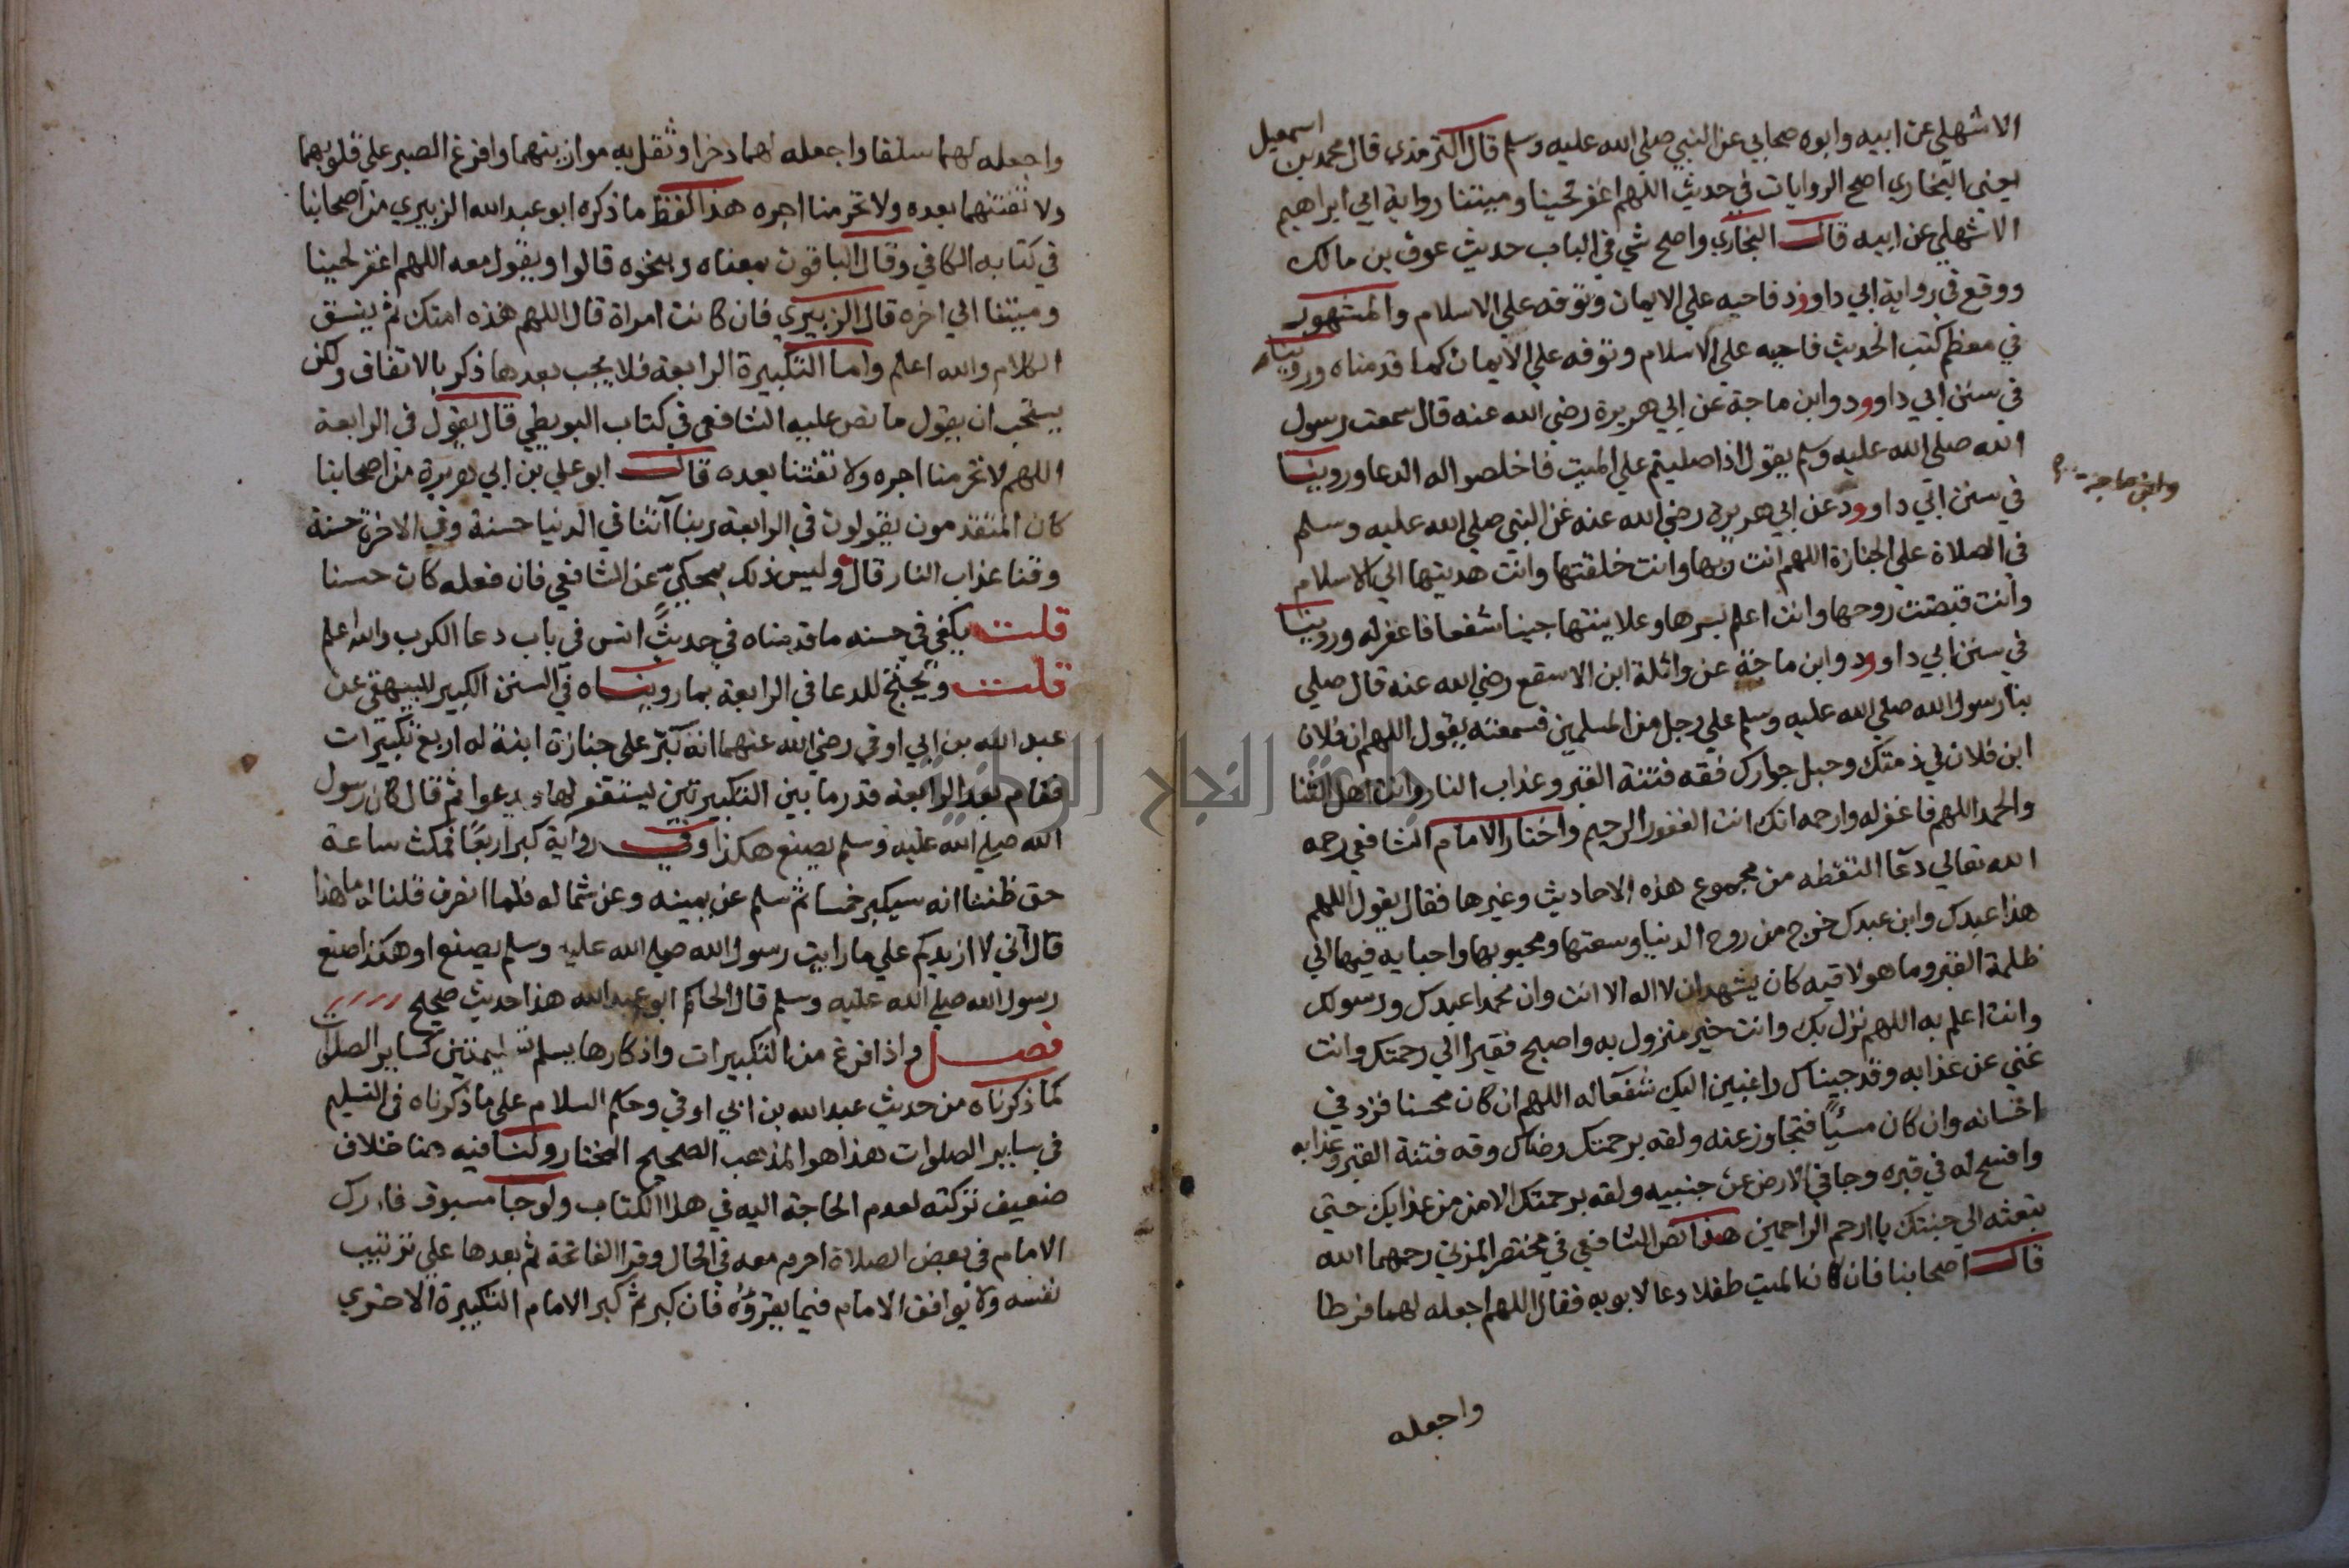 الاشهلي عن ابيه وابوه صحابي عن النبي صلي الله عليه وسلم قال الترمذي قال محمد بن اسمعيل
يعني البخاري اصح الروايات في حديث اللهم اغفر لحينا وميتنا رواية ابي ابراهيم
الاشهلي عن ابيه قال البخاري واصح شي في الباب حديث عوف بن مالك
ووقع في رواية ابي داوود فاحيه علي الايمان وتوفه علي الاسلام والمشهور
في معظم كتب الحديث فاحيه علي الاسلام وتوفه علي الايمان كما قدمناه وروينا
في سنن ابي داوود وابن ماجة عن ابي هريرة رضي الله عنه قال سمعت رسول
الله صلي الله عليه وسلم يقول اذا صليتم علي الميت فاخلصوا له الدعا وروينا
وابن ماجة
في سنن ابي داوود عن ابي هريرة رضي الله عنه عن النبي صلي الله عليه وسلم
في الصلاة علي الجنازة اللهم انت ربها وانت خلقتها وانت هديتها الي الاسلام
وانت قبضت روحها وانت اعلم بسرها وعلاينتها جينا شفعا فاغفر له وروينا
في سنن ابي داوود وابن ماجة عن واثلة ابن الاسقع رضي الله عنه قال صلي
بنا رسول الله صلي الله عليه وسلم علي رجل من المسلمين فسمعته يقول اللهم ان فلان
ابن فلان في ذمتك وحبل جوارك فقه فتنة القبر وعذاب النار وانت اهل الثنا
والحمد اللهم فاغفر له وارحمه انك انت الغفور الرحيم واختار الامام الشافعي رحمه
الله تعالي دعآ التقطه من مجموع هذه الاحاديث وغيرها فقال يقول اللهم
هذا عبدك وابن عبدك خرج من روح الدنيا وسعتها ومحبوبها واحبايه فيها الي
ظلمة القبر وما هو لاقيه كان يشهد ان لا اله الا انت وان محمدا عبدك ورسولك
وانت اعلم به اللهم نزل بك وانت خير منزول به واصبح فقيرا الي رحمتك وانت
غني عن عذابه وقد جيناك راغبين اليك شفعآ له اللهم ان كان محسنا فزد في
احسانه وان كان مسئيًا فتجاوز عنه ولقه برحمتك رضاك وقه فتنة القبر وعذابه
وافسح له في قبره وجافي الارض عن جنبيه ولقه برحمتك الامن من عذابك حتي
تبعثه الي جنتك يا ارحم الراحمين هذا نص الشافعي في مختصر المزني رحمهما الله
قال اصحابنا فان كان الميت طفلا دعا لابويه فقال اللهم اجعله لهما فرطا
واجعله
واجعله لهما سلفا واجعله لهما ذخرا وثقل به موازينهما وافرغ الصبر علي قلوبهما
ولا تفتنهما بعده ولا تحرمنا اجره هذا لفظ ما ذكره ابو عبد الله الزبيري من اصحابنا
في كتابه الكافي وقال الباقون بمعناه وبنحوه قالوا ويقول معه اللهم اغفر لحينا
وميتنا الي اخره قال الزبيري فان كانت امراة قال اللهم هذه امتك ثم ينسق
الكلام والله اعلم واما التكبيرة الرابعة فلا يجب بعدها ذكر بالاتفاق ولكن
يستحب ان يقول ما نص عليه الشافعي في كتاب البويطي قال يقول في الرابعة
اللهم لا تحرمنا اجره ولا تفتنا بعده قال ابو علي بن ابي هريرة من اصحابنا
كان المتقدمون يقولون في الرابعة ربنا آتنا في الدنيا حسنة وفي الاخرة حسنة
وقنا عذاب النار قال وليس ذلك بمحكيٍ عن الشافعي فان فعله كان حسنا
قلت يكفي في حسنه ما قدمناه في حديث انس في باب دعا الكرب والله اعلم
قلت ويحتج للدعا في الرابعة بما رويناه في السنن الكبير للبيهقي عن
عبد الله بن ابي اوفي رضي الله عنهما انه كبر علي جنازة ابنة له اربع تكبيرات
فقام بعد الرابعة قدر ما بين التكبيرتين يستغفر لها ويدعوا ثم قال كان رسول
الله صلي الله عليه وسلم يصنع هكذا وفي رواية كبر اربعًا فمكث ساعة
حتي ظننا انه سيكبر خمسا ثم سلم عن يمينه وعن شماله فلما انصرف قلنا له ما هذا
قال اني لا ازيدكم علي ما رايت رسول الله صلي الله عليه وسلم يصنع او هكذا صنع
رسول الله صلي الله عليه وسلم قال الحاكم ابو عبد الله هذا حديث صحيح
فصل واذا فرغ من التكبيرات واذكارها يسلم تسليمتين كساير الصلوات
كما ذكرناه من حديث عبد الله بن ابي اوفي وحكم السلام علي ما ذكرناه في التسليم
في ساير الصلوات هذا هو المذهب الصحيح المختار ولنا فيه هنا خلاف
ضعيف تركته لعدم الحاجة اليه في هذا الكتاب ولو جا مسبوق فادرك
الامام في بعض الصلاة احرم معه في الحال وقرا الفاتحة ثم بعدها علي ترتيب
نفسه ولا يوافق الامام فيما يقرؤه فان كبر ثم كبر الامام التكبيرة الاخري
جامعة النجاح الوطنية